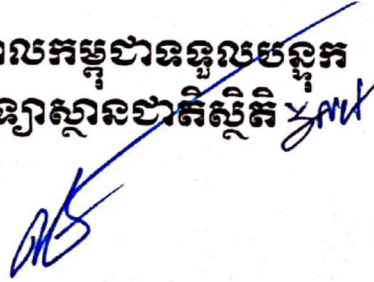 កម្ពុជាទទួលបន្ទុក
ស្ថានជាតិស្ថិតិ